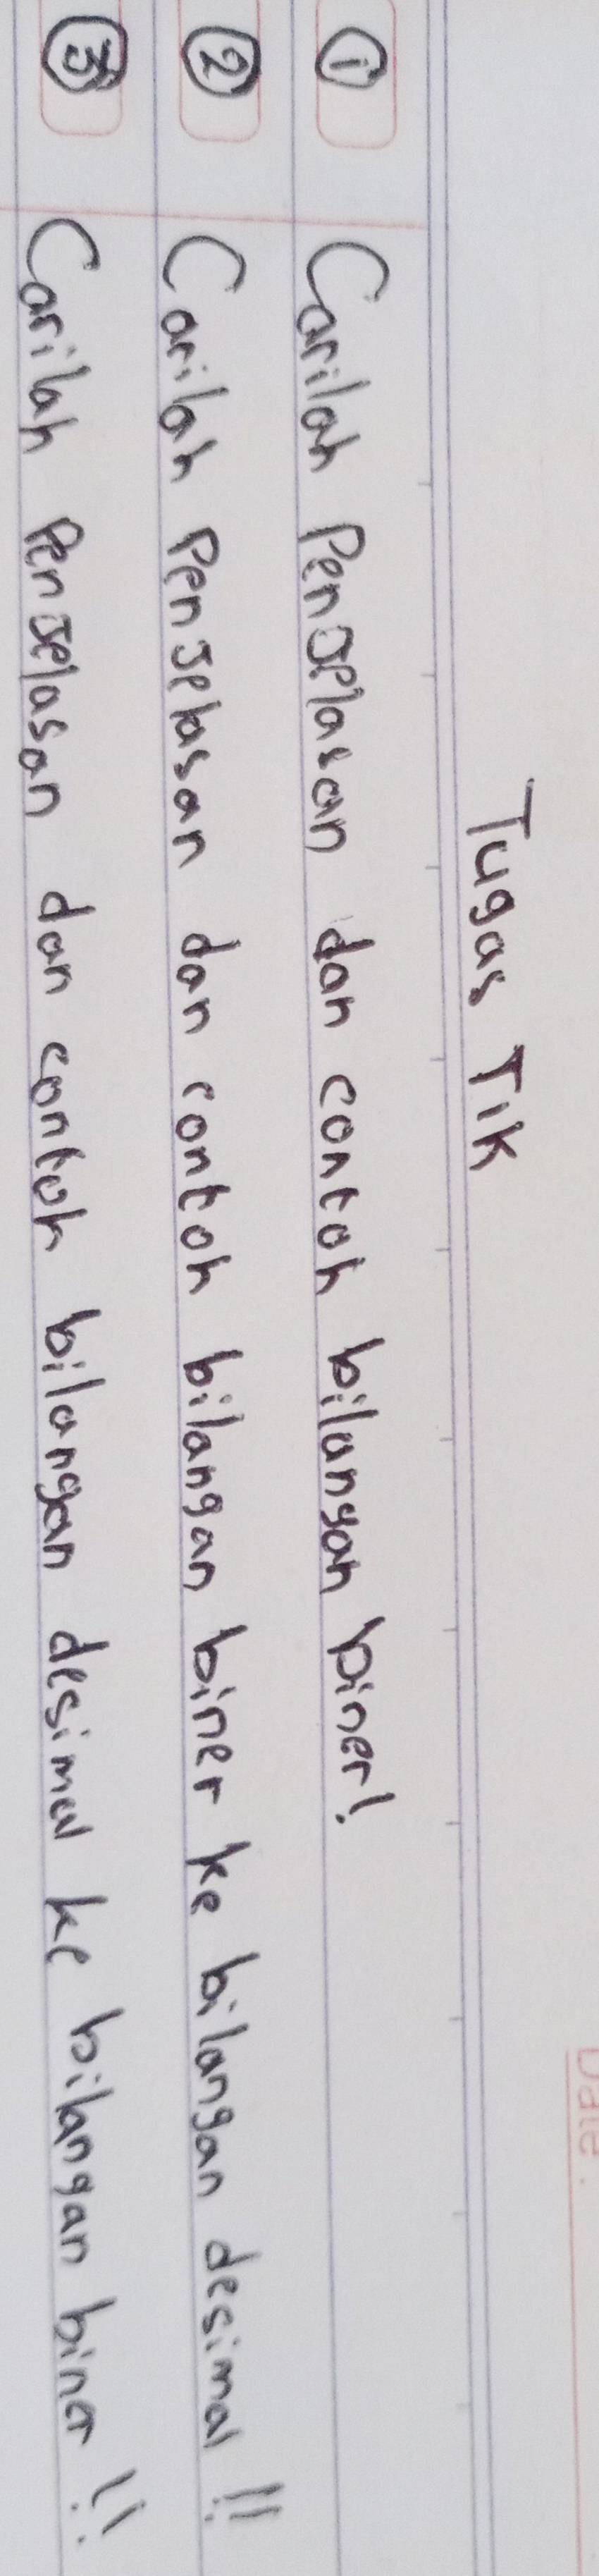 Date.
Tugas TIK
① Carilah Penjelasan dan contoh bilangan biner!
② Carilah Penjelasan dan contoh bilangan biner ke bilangan desimal !!
③ Carilah Penjelasan dan contoh bilangan desimal ke bilangan biner !!